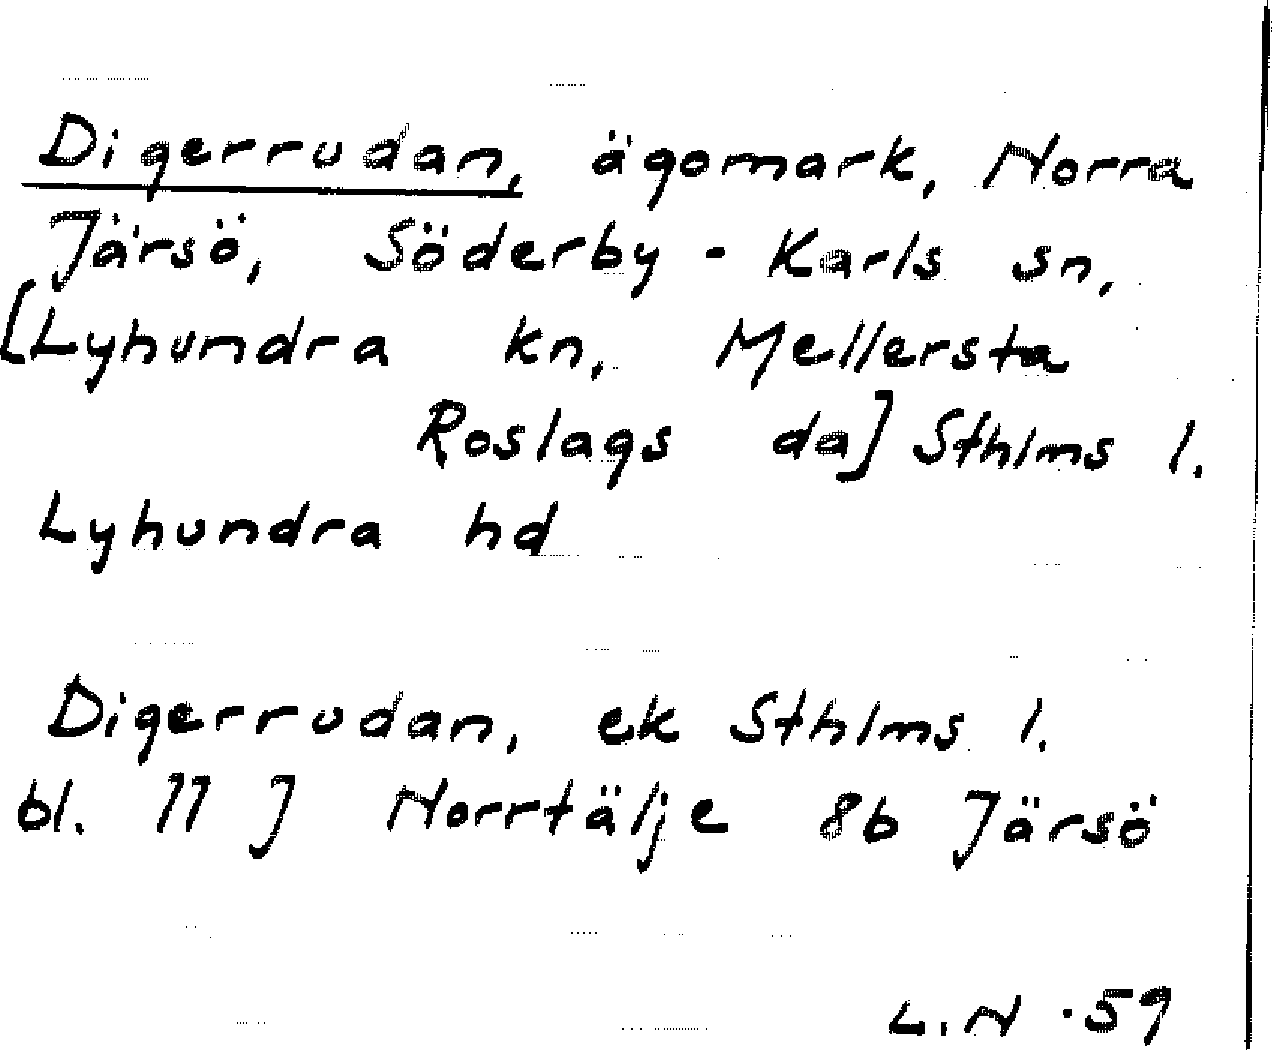 Digerrudan, ägomark, Norra
Järsö, Söderby - Karls sn,
[Lyhundra kn, Mellersta
Roslags da] Sthlms l.
Lyhundra hd
Digerrudan, ek Sthlms l.
bl. 11 J Norrtälje 8b Järsö
L.N .59